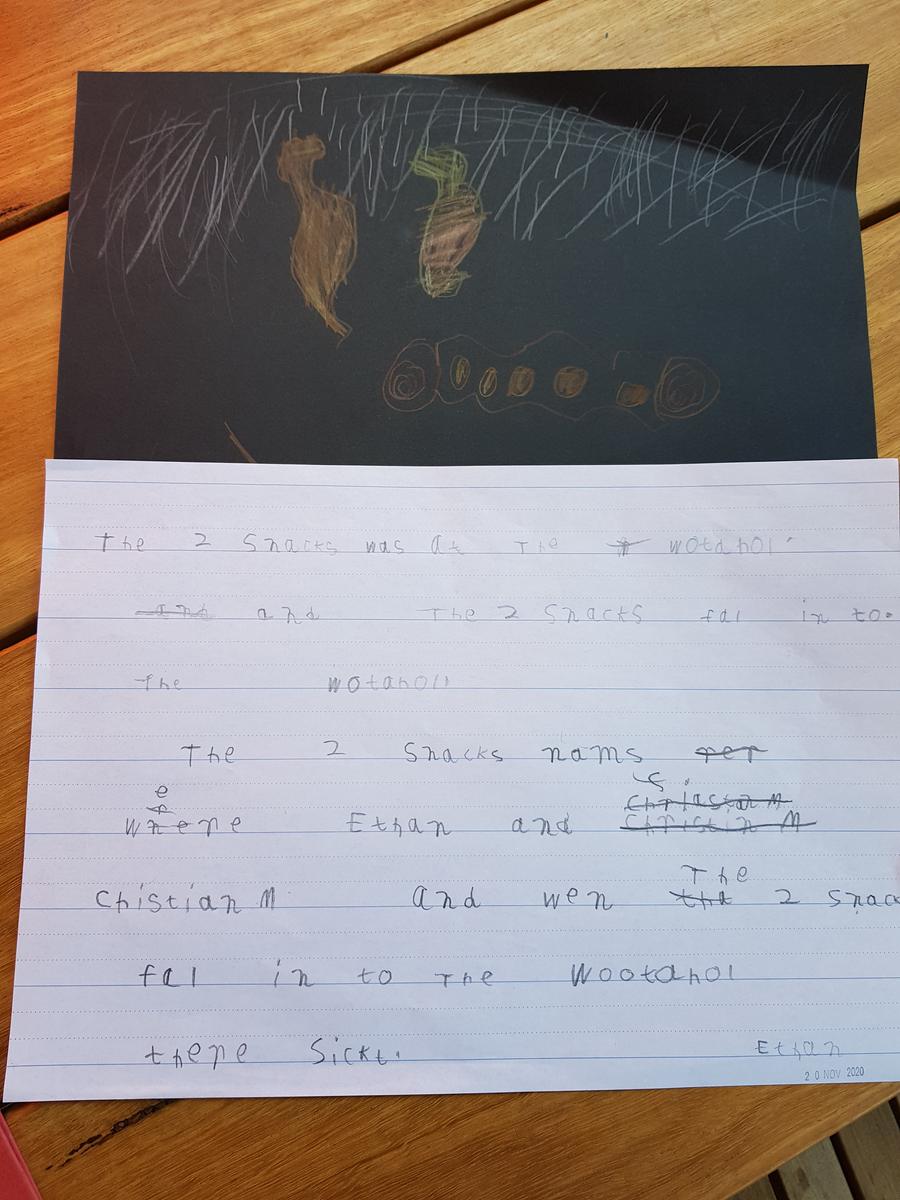 The 2 Snacks was at The wotahol
and and The 2 Snacks fal in to.
The wotahol
The 2 Snacks nams per
e
where Ethan and Christian M
Christin M
The
Chistian M and wen tha 2 Snac
fal in to The Wootahol
there Sickt.
Ethan
20 NOV 2020